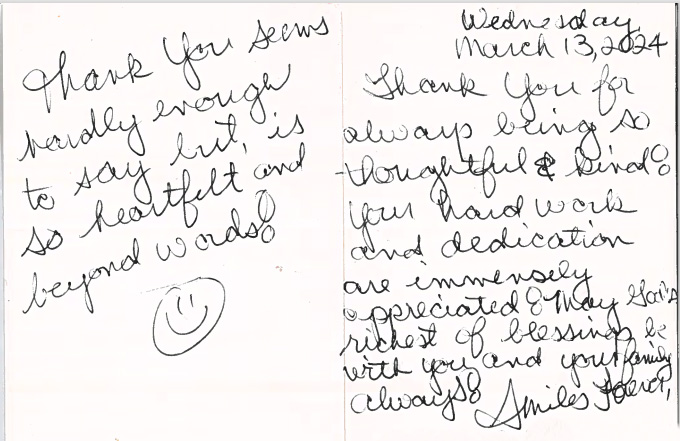 Thank You seems
hardly enough
to say but, is
so heartfelt and
beyond words!
Wednesday
March 13, 2024
Thank You for
always being so
thoughtful & kind!
Your hard work
and dedication
are immensely
appreciated! May God's
richest of blessings be
with you and your family
always!
Smiles Forever,